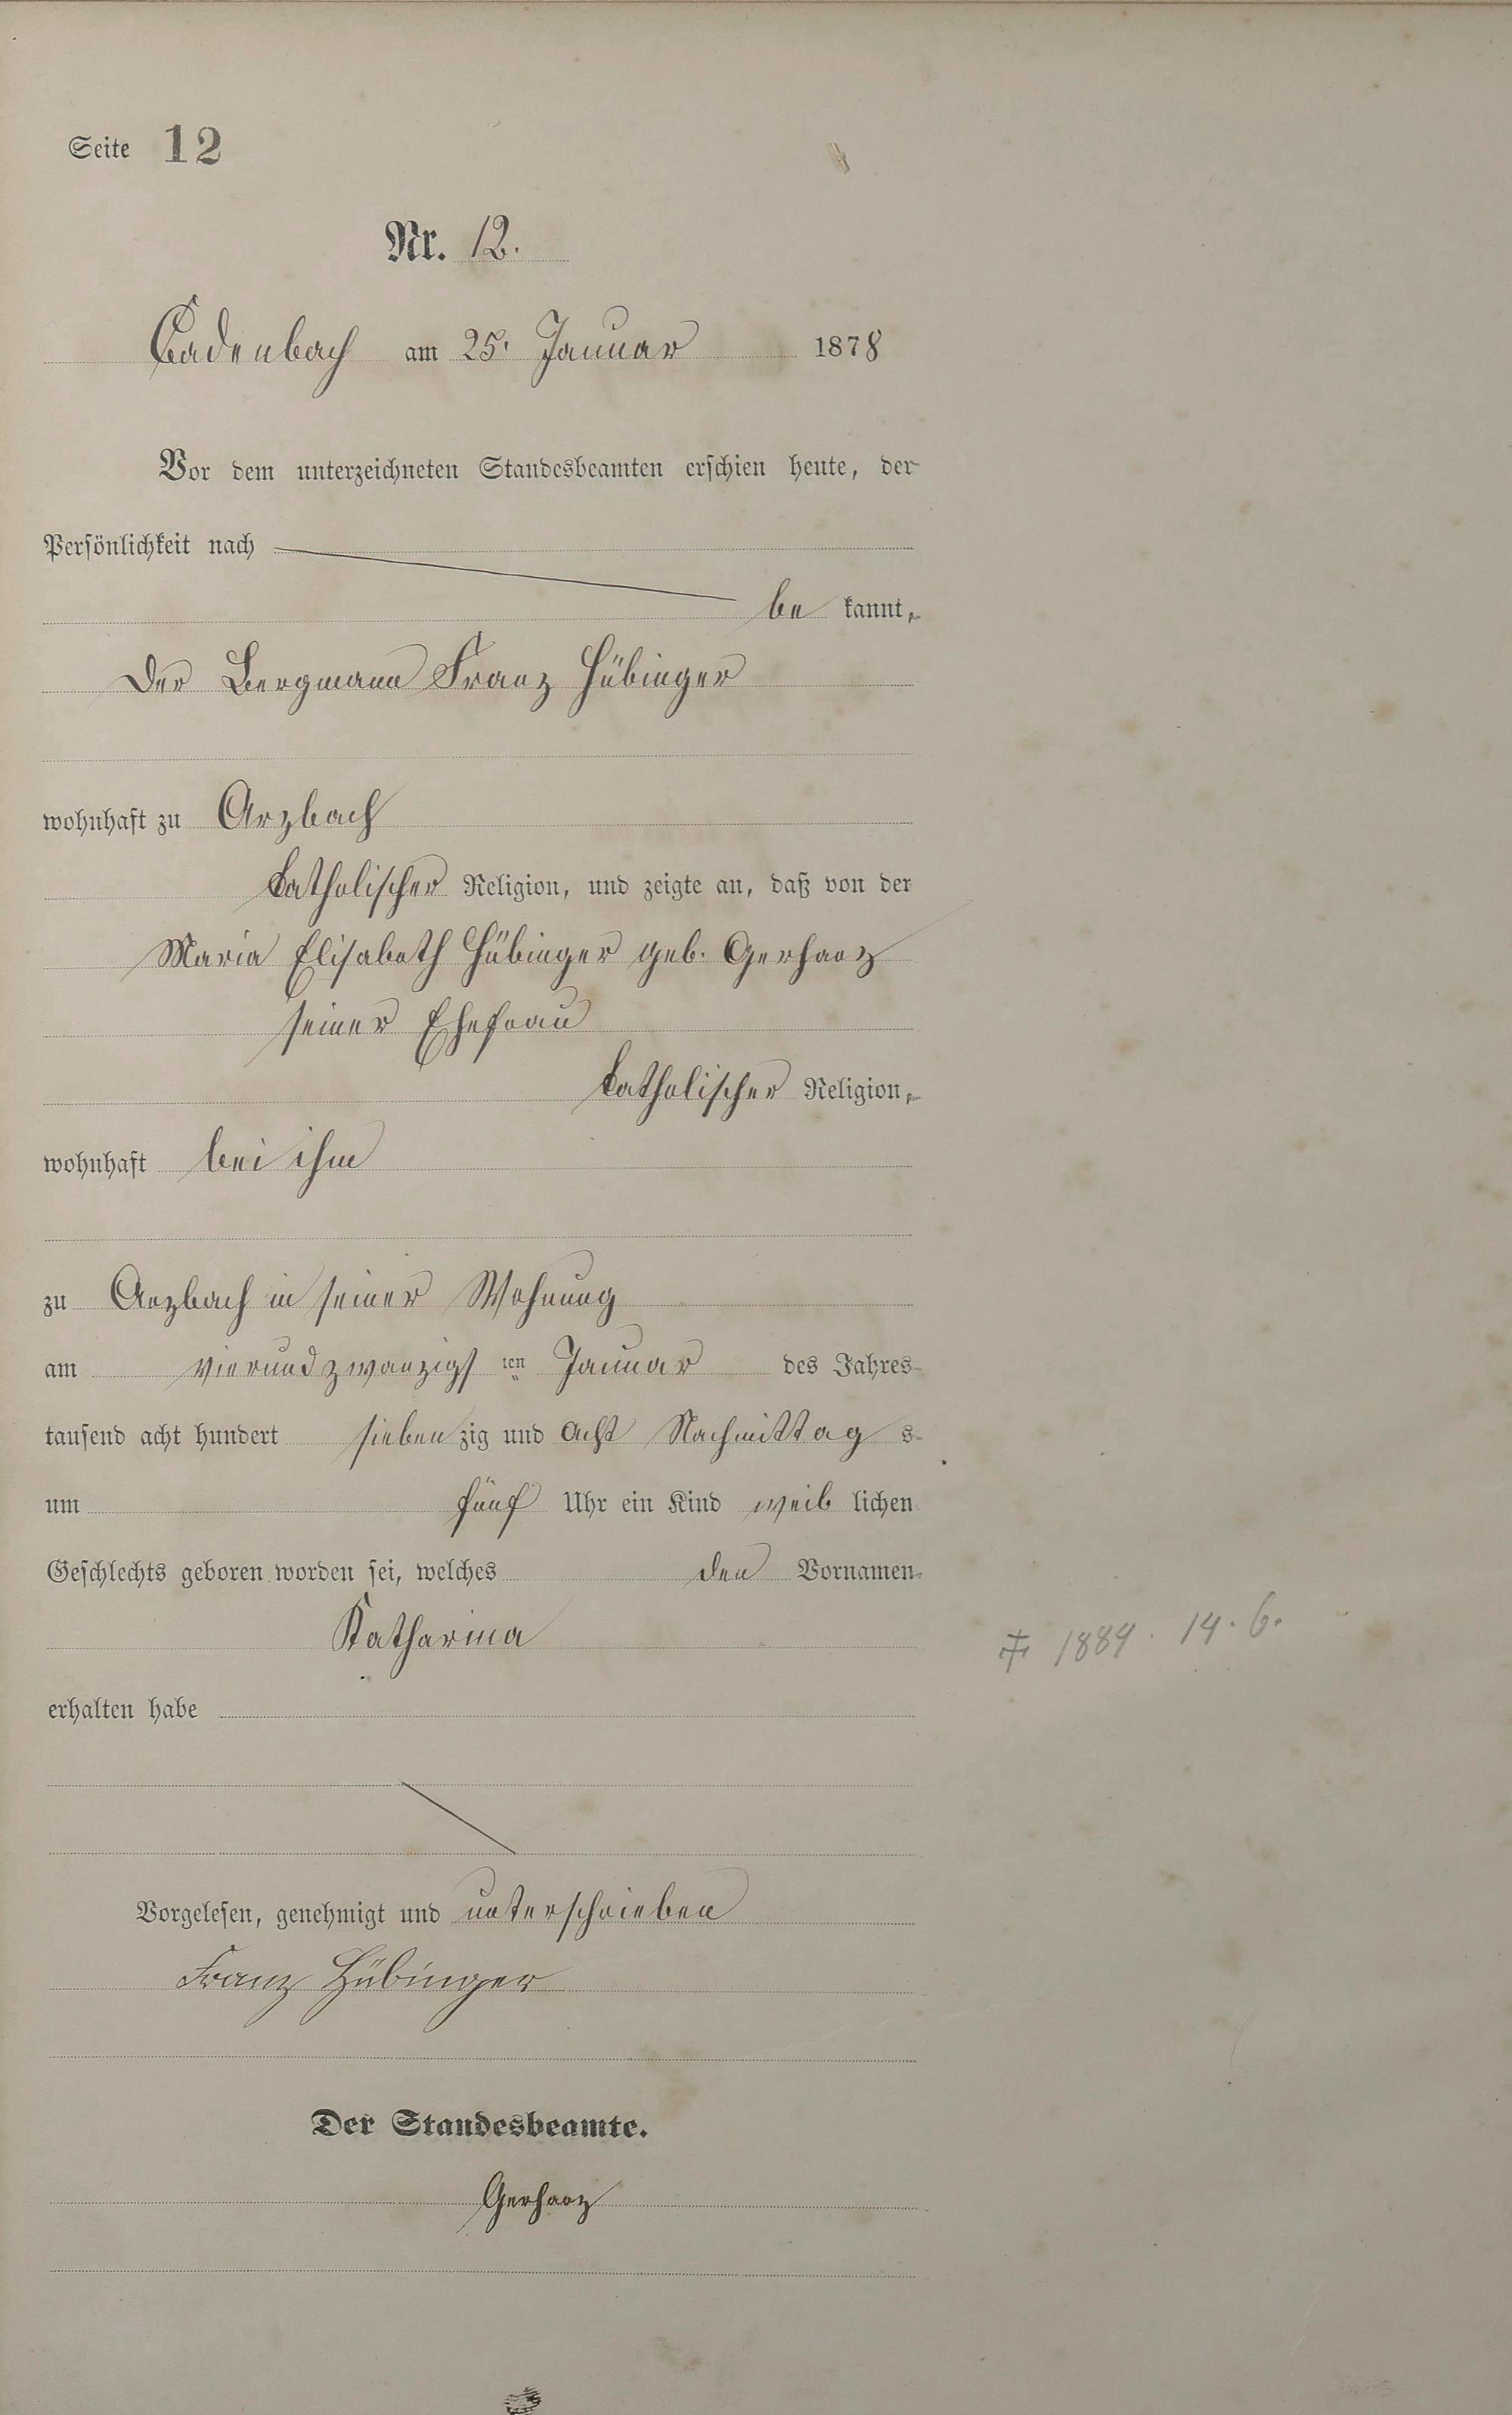 Seite 12
Nr. 12.
Cadenbach am 25. Januar 1878
Vor dem unterzeichneten Standesbeamten erschien heute, der
Persönlichkeit nach
be kannt,
Der Bergmann Franz Hübinger
wohnhaft zu Arzbach
katholischer Religion, und zeigte an, daß von der
Maria Elisabeth Hübinger geb. Gerharz
seiner Ehefrau
katholischer Religion,
wohnhaft bei ihm
zu Arzbach in seiner Wohnung
am vierundzwanzigs ten Januar des Jahres
tausend acht hundert sieben zig und acht Nachmittag s
um fünf Uhr ein Kind weib lichen
Geschlechts geboren worden sei, welches den Vornamen
Katharina
1884. 14. 6.
erhalten habe
Vorgelesen, genehmigt und unterschrieben
Franz Hübinger
Der Standesbeamte.
Gerharz